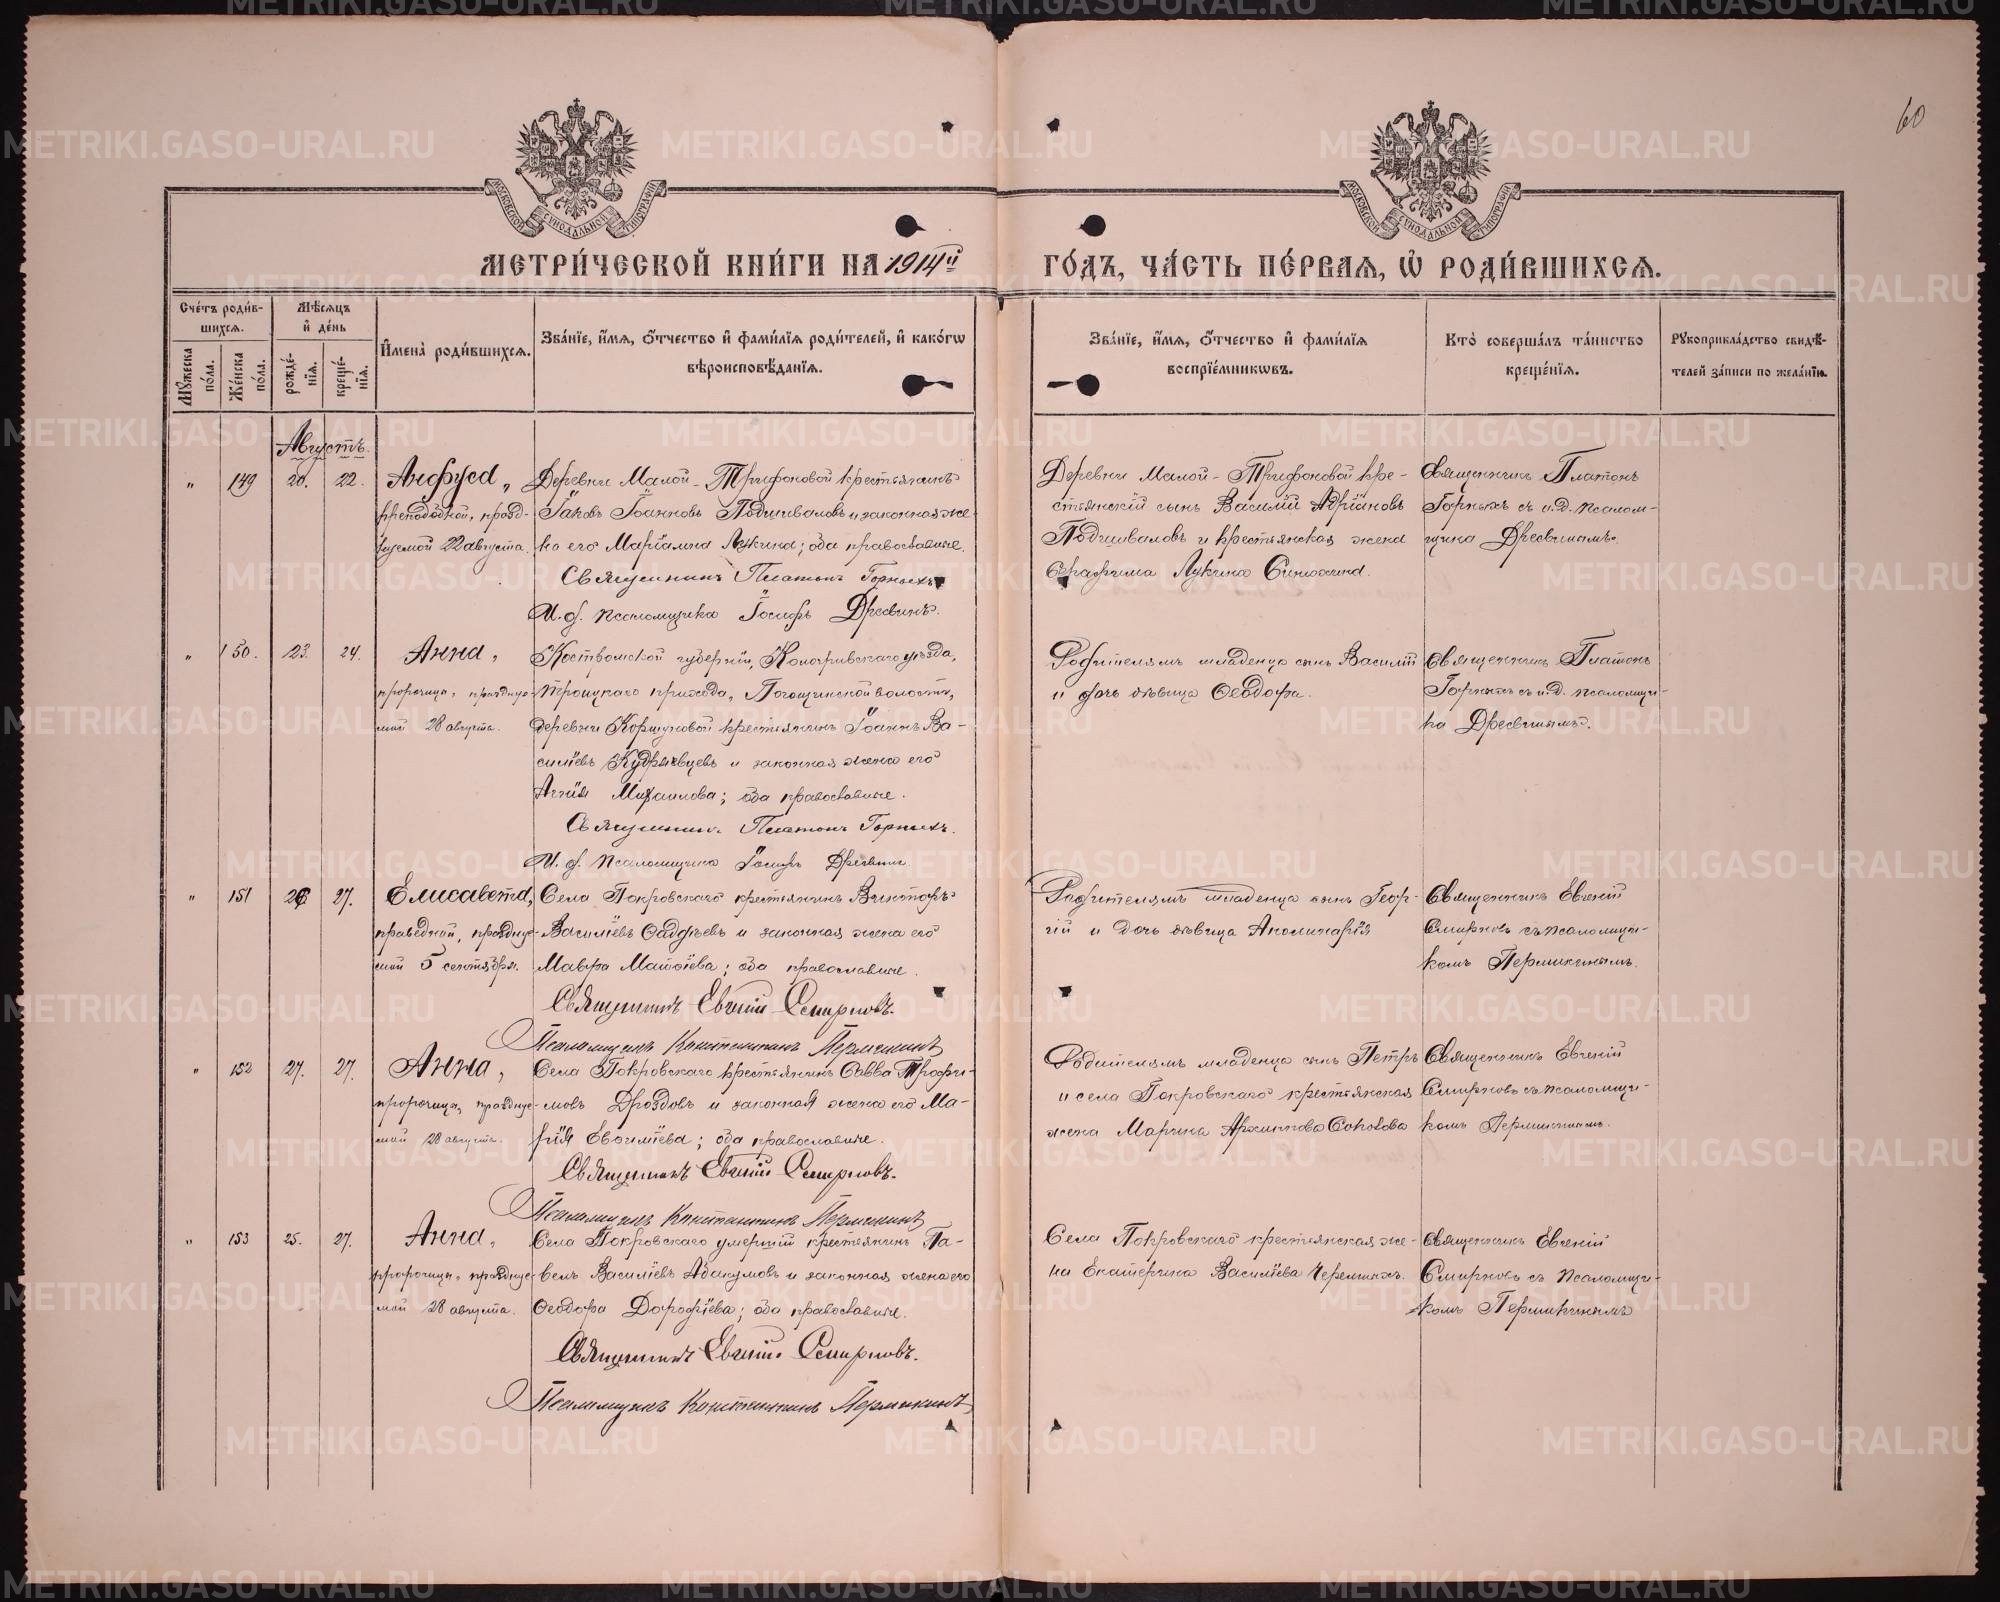 60
МОСКОВСКОЙ СѴНОДАЛЬНОЙ ТИПОГРАФІИ
МОСКОВСКОЙ СѴНОДАЛЬНОЙ ТИПОГРАФІИ
МЕТРИ́ЧЕСКОЙ КНИ́ГИ НА 1914й ГО́ДЪ, ЧА́СТЬ ПЕ́РВАЯ, Ѡ РОДИ́ВШИХСЯ.
Сче́тъ роди́в-
шихся.
Мѣ́сяцъ
и де́нь
Му́жеска по́ла.
Же́нска по́ла.
рожде́-
нїя.
креще́-
нїя.
И҆мена̀ роди́вшихся.
Зва́нїе, и҆́мя, ѻ҆́тчество и҆ фами́лїя роди́телей, и҆ како́гѡ
вѣроисповѣ́данїя.
Зва́нїе, и҆́мя, ѻ҆́тчество и҆ фами́лїя
воспрїе́мникѡвъ.
Кто̀ соверша́лъ та́инство
креще́нїя.
Рꙋкоприкла́дство свидѣ́-
телей за́писи по жела́нїю.
Августъ.
„ 149 20. 22. Анфуса,
преподобной, празд-
нуемой 22 августа.
Деревни Малой-Трифоновой крестьянинъ
Іаковъ Іоанновъ Подшиваловъ и законная же-
на его Маріамна Лукина; оба православные.
Священникъ Платонъ Горныхъ
И. д. псаломщика Іосифъ Дресвинъ.
Деревни Малой-Трифоновой кре-
стьянскій сынъ Василій Адріановъ
Подшиваловъ и крестьянская жена
Серафима Лукина Синюхина.
Священникъ Платонъ
Горныхъ съ и.д. псалом-
щика Дресвинымъ.
„ 150. 23. 24. Анна,
пророчицы, праздную-
мой 28 августа.
Костромской губерніи, Кологривскаго уѣзда,
троицкаго прихода, волости,
деревни Коршуновой крестьянинъ Іоаннъ Ва-
силіевъ Кудрявцевъ и законная жена его
Агнія Михаилова; оба православные.
Священникъ Платонъ Горныхъ.
И. д. псаломщика Іосифъ Дресвинъ
Родителямъ младенца сынъ Василій
и дочь дѣвица Ѳеодора.
Священникъ Платонъ
Горныхъ съ и.д. псаломщи-
ка Дресвинымъ.
„ 151 26 27. Елисавета,
праведной, праздну-
емой 5 сентября.
Села Покровскаго крестьянинъ Викторъ
Василіевъ Фаддѣевъ и законная жена его
Мавра Матѳіева; оба православные.
Священникъ Евгеній Смирновъ.
Псаломщикъ Константинъ Пермикинъ
Родителямъ младенца сынъ Геор-
гій и дочь дѣвица Аполинарія
Священникъ Евгеній
Смирновъ съ псаломщи-
комъ Пермикинымъ.
„ 152 27. 27. Анна,
пророчицы, праздну-
емой 28 августа.
Села Покровскаго крестьянинъ Савва Трофи-
мовъ Дроздовъ и законная жена его Ма-
рія Евѳиміева; оба православные.
Священникъ Евгеній Смирновъ.
Псаломщикъ Константинъ Пермикинъ
Родителямъ младенца сынъ Петръ
и села Покровскаго крестьянская
жена Марина Архипова Соколова
Священникъ Евгеній
Смирновъ съ псаломщи-
комъ Пермикинымъ.
„ 153 25. 27. Анна,
пророчицы, праздну-
емой 28 августа.
Села Покровскаго умершій крестьянинъ Па-
велъ Василіевъ Абакумовъ и законная жена его
Ѳеодора Дорофіева; оба православные.
Священникъ Евгеній Смирновъ.
Псаломщикъ Константинъ Пермикинъ
Села Покровскаго крестьянская же-
на Екатерина Василіева Черемныхъ.
Священникъ Евгеній
Смирновъ съ псаломщи-
комъ Пермикинымъ
METRIKI.GASO-URAL.RU